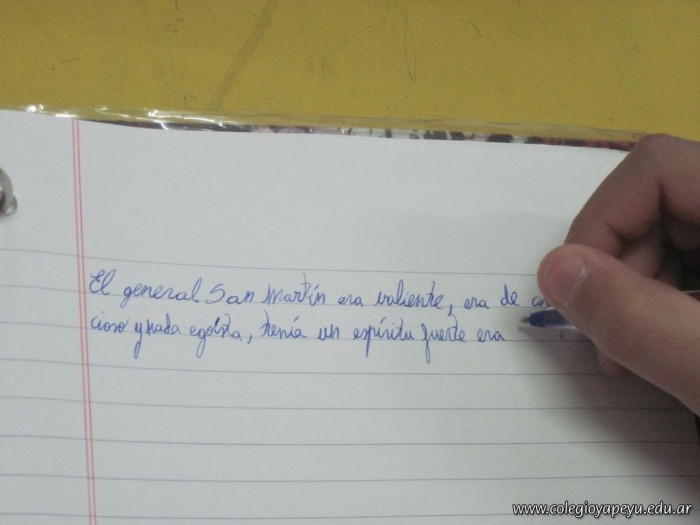 El general San Martín era valiente, era de
cioso y nada egoísta, tenía un espíritu fuerte era
www.colegioyapeyu.edu.ar